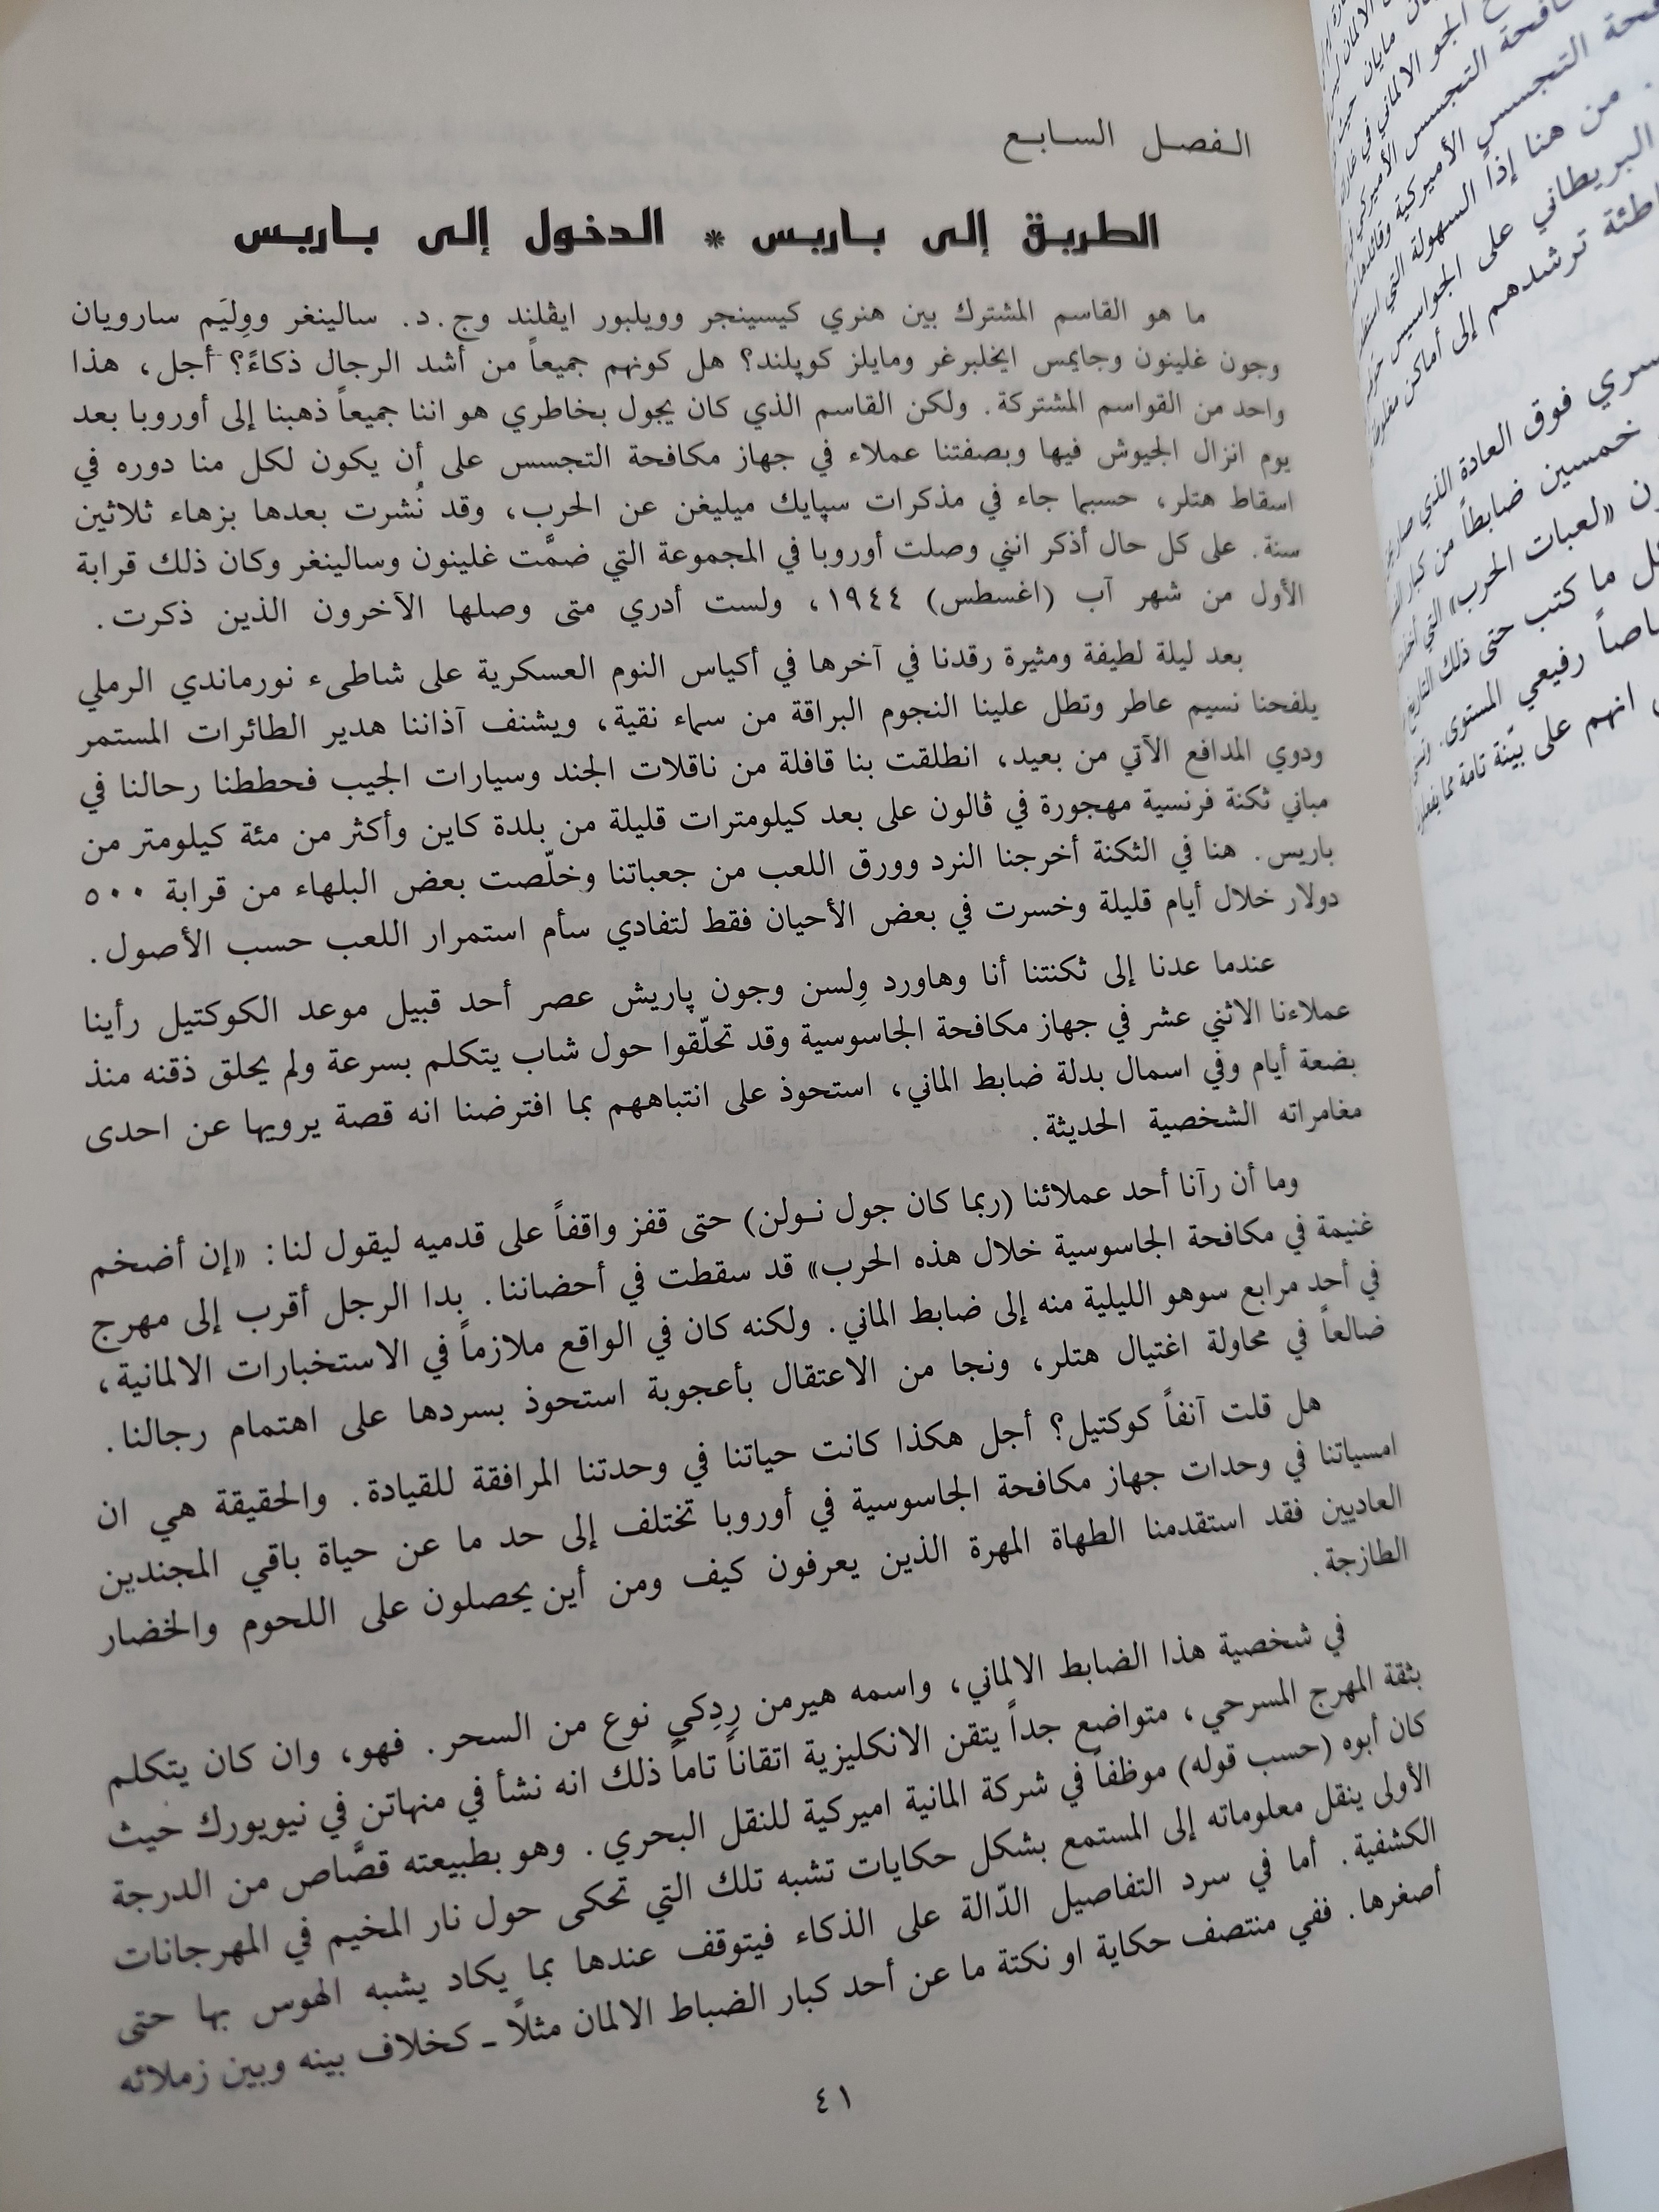 الفصل السابع
الطريق إلى باريس * الدخول إلى باريس
ما هو القاسم المشترك بين هنري كيسينجر وويلبور ايڤلند وج.د. سالينغر ووِليَم سارويان
وجون غلينون وجايمس ايخلبرغر ومايلز كوپلند؟ هل كونهم جميعاً من أشد الرجال ذكاءً؟ أجل، هذا
واحد من القواسم المشتركة. ولكن القاسم الذي كان يجول بخاطري هو اننا جميعاً ذهبنا إلى أوروبا بعد
يوم انزال الجيوش فيها وبصفتنا عملاء في جهاز مكافحة التجسس على أن يكون لكل منا دوره في
اسقاط هتلر، حسبما جاء في مذكرات سپايك ميليغن عن الحرب، وقد نُشرت بعدها بزهاء ثلاثين
سنة. على كل حال أذكر انني وصلت أوروبا في المجموعة التي ضمَّت غلينون وسالينغر وكان ذلك قرابة
الأول من شهر آب (اغسطس) ١٩٤٤، ولست أدري متى وصلها الآخرون الذين ذكرت.
بعد ليلة لطيفة ومثيرة رقدنا في آخرها في أكياس النوم العسكرية على شاطىء نورماندي الرملي
يلفحنا نسيم عاطر وتطل علينا النجوم البراقة من سماء نقية، ويشنف آذاننا هدير الطائرات المستمر
ودوي المدافع الآتي من بعيد، انطلقت بنا قافلة من ناقلات الجند وسيارات الجيب فحططنا رحالنا في
مباني ثكنة فرنسية مهجورة في ڤالون على بعد كيلومترات قليلة من بلدة كاين وأكثر من مئة كيلومتر من
باريس. هنا في الثكنة أخرجنا النرد وورق اللعب من جعباتنا وخلّصت بعض البلهاء من قرابة ٥٠٠
دولار خلال أيام قليلة وخسرت في بعض الأحيان فقط لتفادي سأم استمرار اللعب حسب الأصول.
عندما عدنا إلى ثكنتنا أنا وهاورد وِلسن وجون پاريش عصر أحد قبيل موعد الكوكتيل رأينا
عملاءنا الاثني عشر في جهاز مكافحة الجاسوسية وقد تحلّقوا حول شاب يتكلم بسرعة ولم يحلق ذقنه منذ
بضعة أيام وفي اسمال بدلة ضابط الماني، استحوذ على انتباههم بما افترضنا انه قصة يرويها عن احدى
مغامراته الشخصية الحديثة.
وما أن رآنا أحد عملائنا (ربما كان جول نولن) حتى قفز واقفاً على قدميه ليقول لنا: «إن أضخم
غنيمة في مكافحة الجاسوسية خلال هذه الحرب» قد سقطت في أحضاننا. بدا الرجل أقرب إلى مهرج
في أحد مرابع سوهو الليلية منه إلى ضابط الماني. ولكنه كان في الواقع ملازماً في الاستخبارات الالمانية،
ضالعاً في محاولة اغتيال هتلر، ونجا من الاعتقال بأعجوبة استحوذ بسردها على اهتمام رجالنا.
هل قلت آنفاً كوكتيل؟ أجل هكذا كانت حياتنا في وحدتنا المرافقة للقيادة. والحقيقة هي ان
امسياتنا في وحدات جهاز مكافحة الجاسوسية في أوروبا تختلف إلى حد ما عن حياة باقي المجندين
العاديين فقد استقدمنا الطهاة المهرة الذين يعرفون كيف ومن أين يحصلون على اللحوم والخضار
الطازجة.
في شخصية هذا الضابط الالماني، واسمه هيرمن رِدِكي نوع من السحر. فهو، وان كان يتكلم
بثقة المهرج المسرحي، متواضع جداً يتقن الانكليزية اتقاناً تاماً ذلك انه نشأ في منهاتن في نيويورك حيث
كان أبوه (حسب قوله) موظفاً في شركة المانية اميركية للنقل البحري. وهو بطبيعته قصَّاص من الدرجة
الأولى ينقل معلوماته إلى المستمع بشكل حكايات تشبه تلك التي تحكى حول نار المخيم في المهرجانات
الكشفية. أما في سرد التفاصيل الدّالة على الذكاء فيتوقف عندها بما يكاد يشبه الهوس بها حتى
أصغرها. ففي منتصف حكاية او نكتة ما عن أحد كبار الضباط الالمان مثلاً ـ كخلاف بينه وبين زملائه
٤١
الجو الالماني في
كافحة التجسس الأميركي
التجسس الأميركية
من هنا إذاً السهولة التي
البريطاني على الجواسيس
ترشدهم إلى أماكن
سري فوق العادة الذي
خمسين ضابطاً من كبار
«لعبات الحرب» التي
ما كتب حتى ذلك التاريخ
رفيعي المستوى.
انهم على بيّنة تامة مما